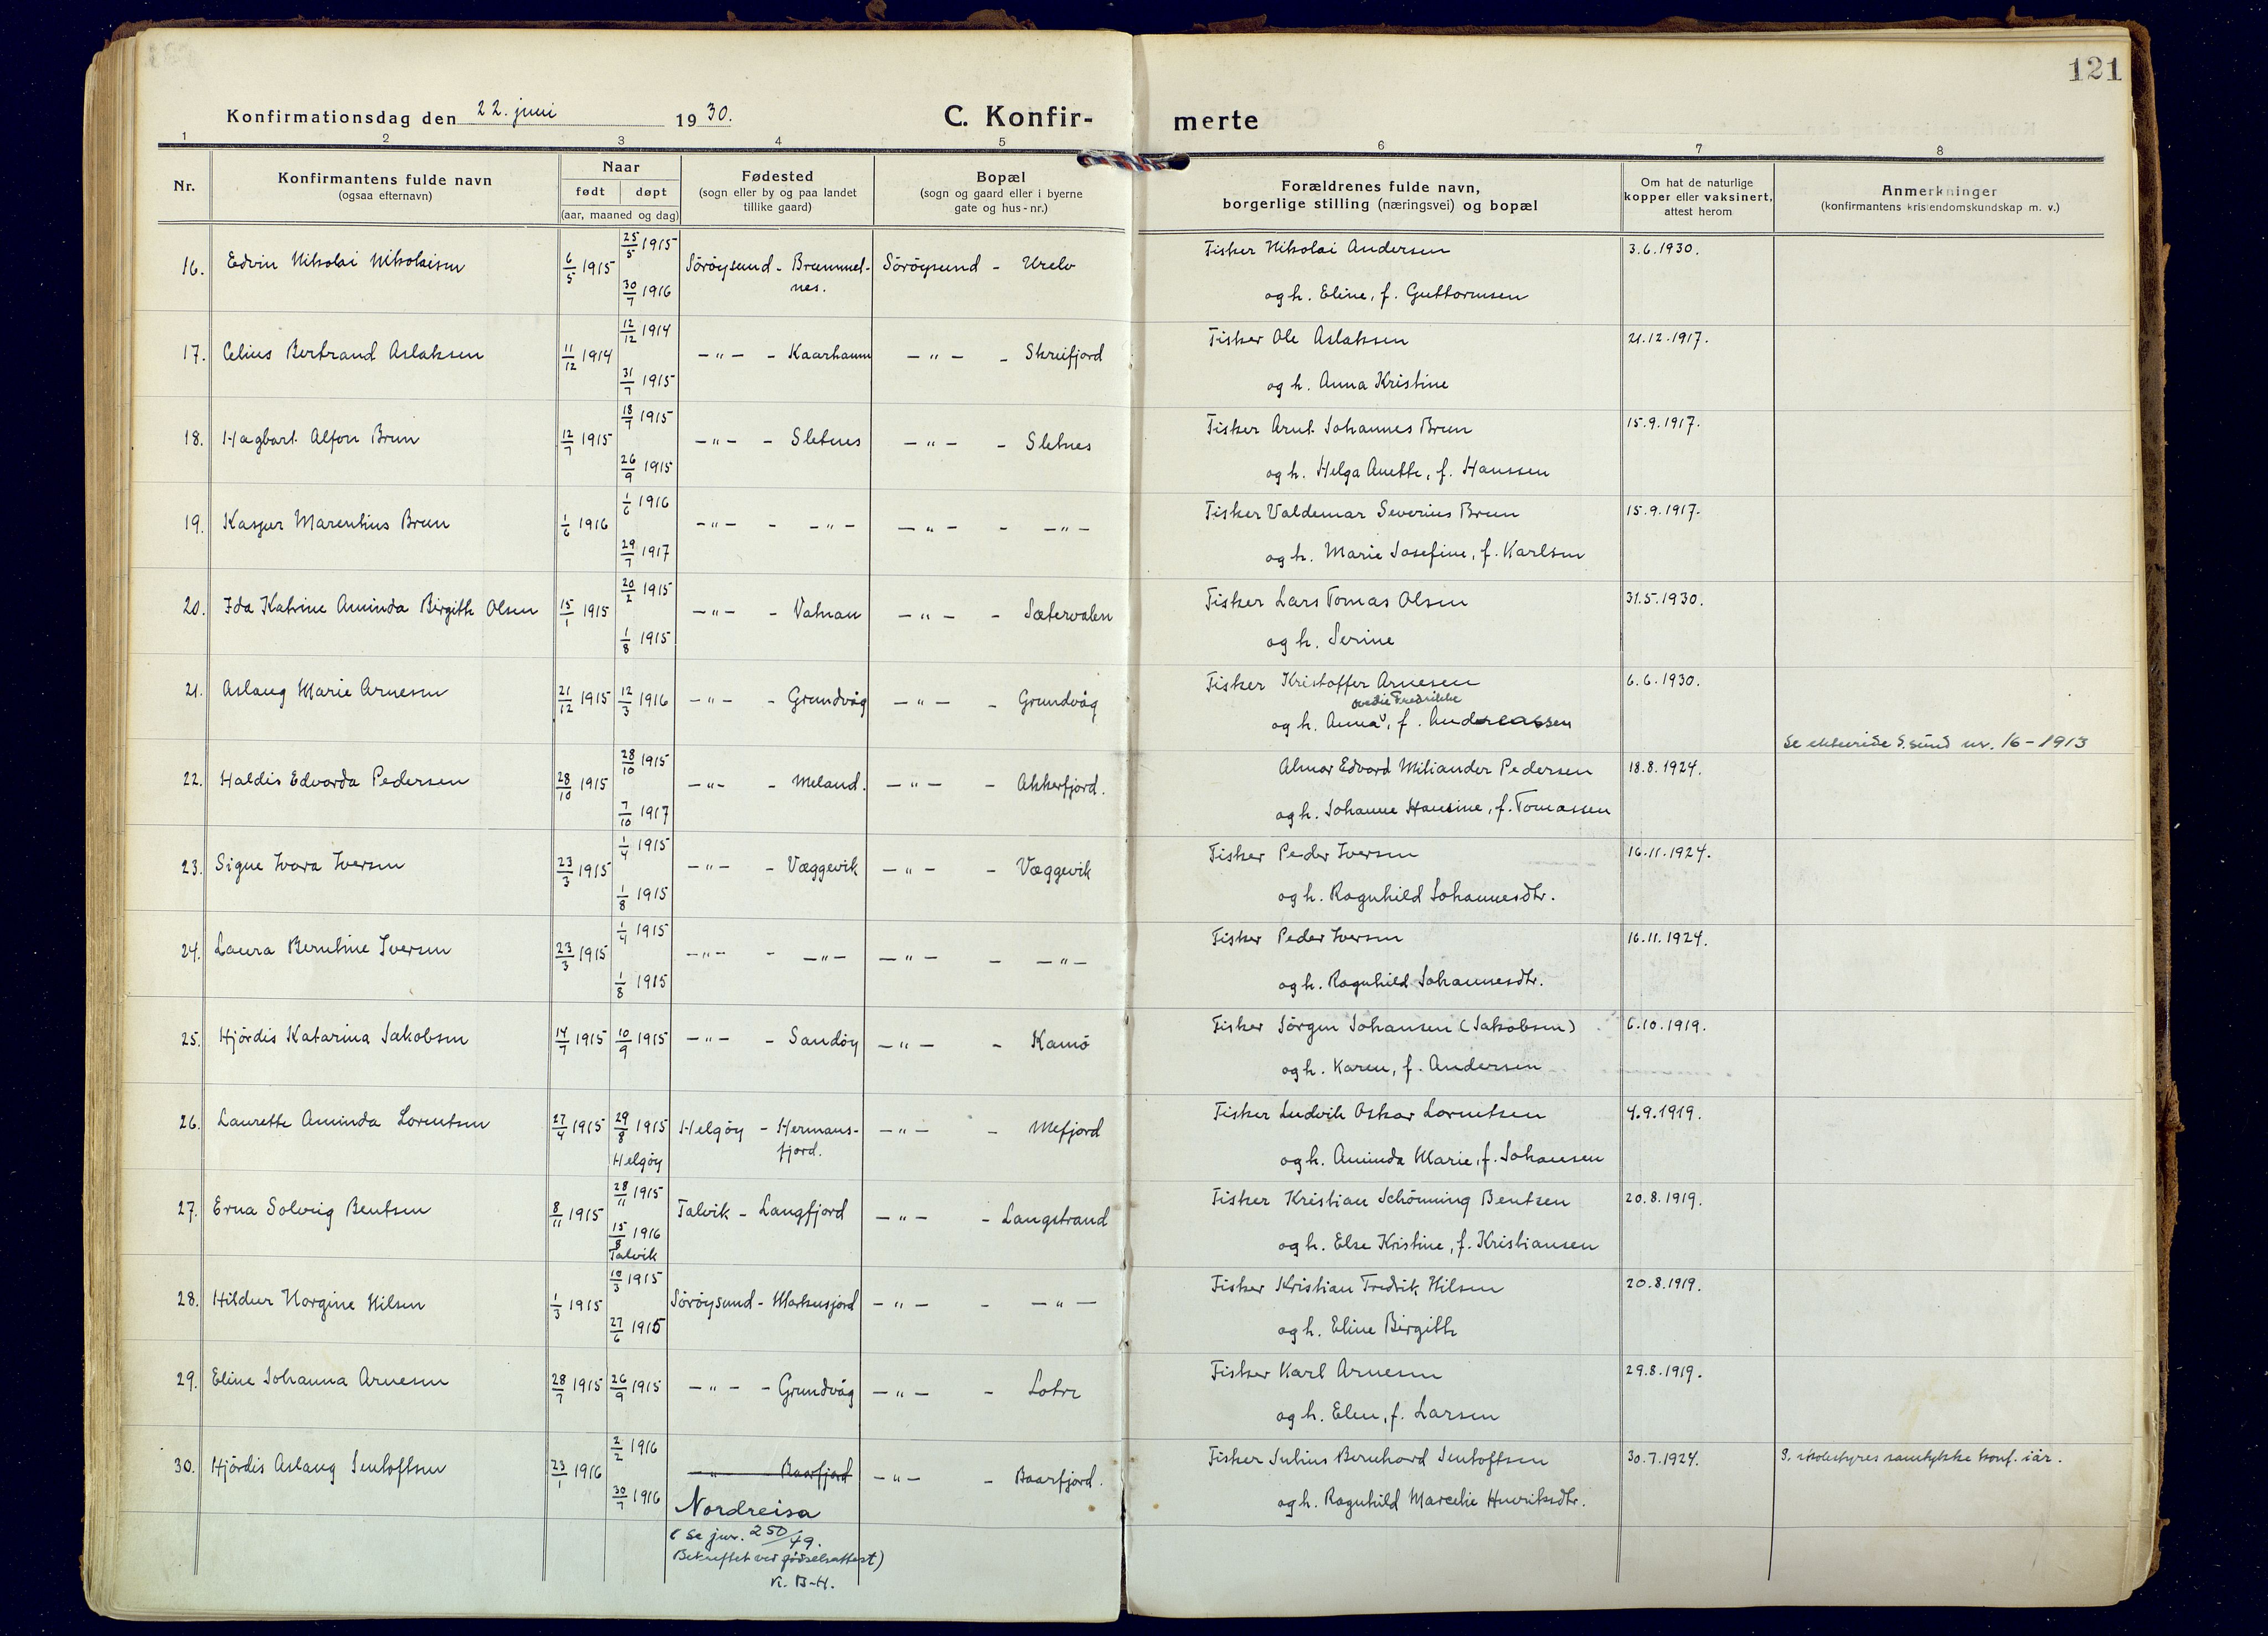 121
Konfirmationsdag den 22. juni 1930.
C. Konfir-
merte
1 2 3 4 5 6 7 8
Nr.
Konfirmantens fulde navn
(ogsaa efternavn)
Naar
født døpt
(aar, maaned og dag)
Fødested
(sogn eller by og paa landet
tillike gaard)
Bopæl
(sogn og gaard eller i byerne
gate og hus-nr.)
Forældrenes fulde navn,
borgerlige stilling (næringsvei) og bopæl
Om hat de naturlige
kopper eller vaksinert,
attest herom
Anmerkninger
(konfirmantens kristendomskundskap m. v.)
25/5 1915
16. Edvin Nikolai Nikolaisen 6/5 1915 Söröysund - Brummel- Söröysund -
nes.
30/7 1916
Fisker Nikolai Andersen 3.6.1930.
og h. Eline, f. Guttormsen
12/12 1914
17. Celius Bertrand Aslaksen 11/12 1914 -"- - Kaarhamn -"- - Skreifjord
31/7 1915
Fisker Ole Aslaksen 21.12.1917.
og h. Anna Kristine
18/7 1915
18. Hagbart Alfon Brun 12/7 1915 -"- - Sletnes -"- - Sletnes
26/9 1915
Fisker Arnt Johannes Brun 15.9.1917.
og h. Helga Anette, f. Hanssen
1/6 1916
19. Kaspar Marentius Brun 1/6 1916 -"- - -"- -"- - -"-
29/7 1917
Fisker Valdemar Severius Brun 15.9.1917.
og h. Marie Josefine, f. Karlsen
20/2 1915
20. Ida Katrine Aminda Birgitte Olsen 15/1 1915 -"- - Vatnan -"- - Sætervalen
1/8 1915
Fisker Lars Tomas Olsen 31.5.1930.
og h. Serine
21. Aslaug Marie Arnesen 21/12 1915 12/3 1916 -"- - Grundvåg -"- - Grundvåg
Fisker Kristoffer Arnesen 6.6.1930.
Ovedie Fredrikke
og h. Anna, f. Andreassen
28/10 1915
22. Haldis Edvarda Pedersen 28/10 1915 -"- - Meland. -"- - Akkerfjord.
7/10 1917
Se S.sund nr. 16-1913
Almar Edvard Miliander Pedersen 18.8.1924.
og h. Johanne Hansine, f. Tomassen
1/4 1915
23. Signe Ivara Iversen 23/3 1915 -"- - Væggevik -"- - Væggevik
1/8 1915
Fisker Peder Iversen 16.11.1924.
og h. Ragnhild Johannesdtr.
1/4 1915
24. Laura Berntine Iversen 23/3 1915 -"- - -"- -"- - -"-
1/8 1915
Fisker Peder Iversen 16.11.1924.
og h. Ragnhild Johannesdtr.
25. Hjördis Katarina Jakobsen 14/7 1915 10/9 1915 -"- - Sandöy -"- - Kamö
Fisker Jörgen Johansen (Jakobsen) 6.10.1919.
og h. Karen, f. Andersen
26. Laurette Aminda Lorentsen 27/4 1915 29/8 1915 Helgöy - Hermans- -"- - Mefjord
fjord.
Helgöy
Fisker Ludvik Oskar Lorentsen 4.9.1919.
og h. Aminda Marie, f. Johansen
28/11 1915
27. Erna Solveig Bentsen 8/11 1915 Talvik - Langfjord -"- - Langstrand
15/8 1916
Talvik
Fisker Kristian Schönning Bentsen 20.8.1919.
og h. Else Kristine, f. Kristiansen
10/3 1915
28. Hildur Norgine Nilsen 1/3 1915 Söröysund - Markusfjord -"- - -"-
27/6 1915
Fisker Kristian Fredrik Nilsen 20.8.1919.
og h. Eline Birgitte
29. Eline Johanna Arnesen 28/7 1915 26/9 1915 -"- - Grundvåg -"- - Lotre
Fisker Karl Arnesen 29.8.1919.
og h. Elen, f. Larsen
2/2 1916
30. Hjördis Aslaug Jentoftsen 23/1 1916 -"- Baarfjord -"- - Baarfjord.
30/7 1916
Nordreisa
(Se jnr. 250/49.
Bekreftet ved fødselsattest)
K. B-H.
Fisker Julius Bernhard Jentoftsen 30.7.1924. S. skolestyres samtykke konf. i år.
og h. Ragnhild Marelie Henriksdtr.